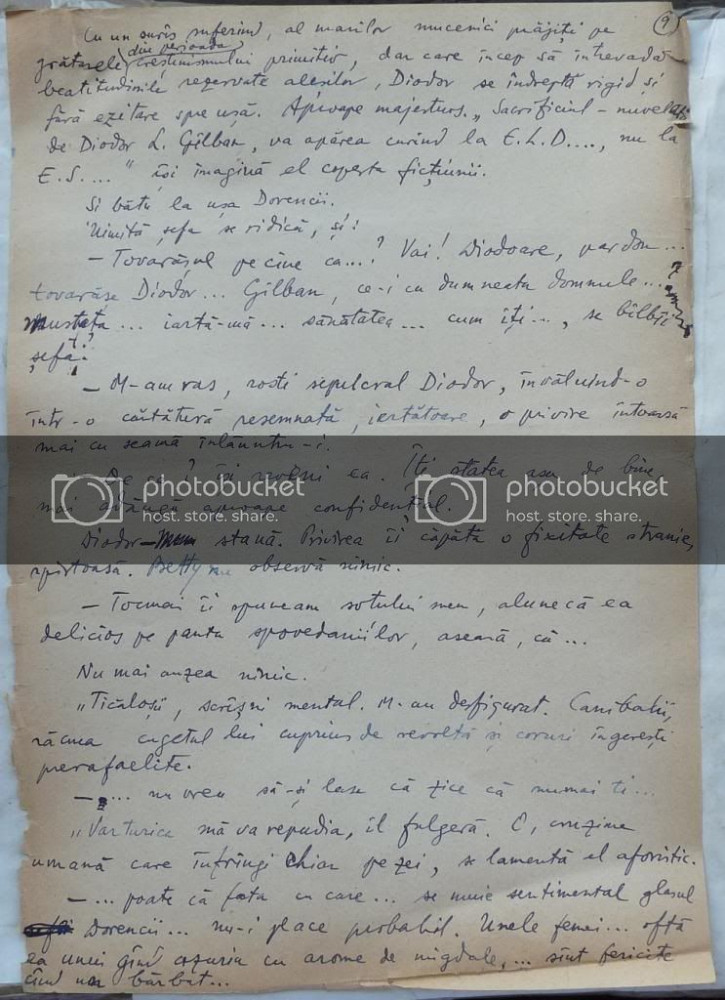 9
Cu un surîs suferind, al marilor mucenici prăjiți pe
grătarele din perioada creștinismului primitiv, dar care încep să întrevadă
beatitudinile rezervate aleșilor, Diodor se îndreptă rigid și
fără ezitare spre ușă. Aproape majestuos. „Sacrificiul – nuvelă
de Diodor L. Gîlban, va apărea curînd la E.L.D...., nu la
E.S....” își imagină el coperta ficțiunii.
Și bătu la ușa Dorencii.
Uimită șefa se ridică, și:
– Tovarășul pe cine ca...? Vai! Diodoare, pardon...
tovarășe Diodor... Gîlban, ce-i cu dumneata domnule...?
mustața... iartă-mă... sănătatea... cum îți..., se bîlbîi
șefa.
– M-am ras, rosti sepulcral Diodor, învăluind-o
într-o căutătură resemnată, iertătoare, o privire întoarsă
mai cu seamă înlăuntru-i.
– De ce? îi zvolni ea. Îți stătea așa de bine,
mai adăugă aproape confidențial.
photobucket
host. store. share.
photobucket
host. store. share.
Diodor stană. Privirea îi căpăta o fixitate stranie,
spirtoasă. Betty nu observă nimic.
– Tocmai îi spuneam soțului meu, alunecă ea
delicios pe panta spovedaniilor, aseară, că...
Nu mai auzea nimic.
„Ticăloșii, scrîșni mental. M-au defigurat. Canibalii,
răcnea cugetul lui cuprins de revoltă și coruri îngerești
prerafaelite.
– ... nu vrea să-și lase că zice că numai ti...
„Varturica mă va repudia, îl fulgeră. O, cruzime
umană care înfrîngi chiar pe zei, se lamentă el aforistic.
– ... poate că fata cu care... se muie sentimental glasul
Dorencii... nu-i place probabil. Unele femei... oftă
ea unui gînd cu arome de migdale, ... sînt fericite
cînd un bărbat...